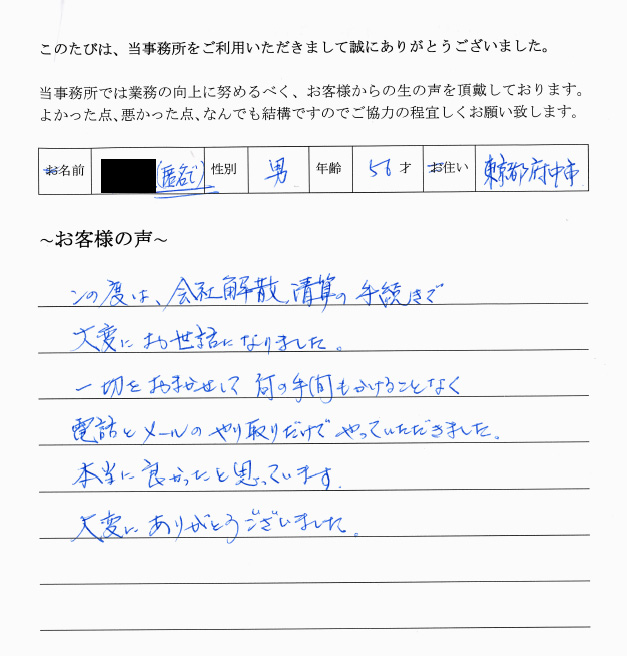 このたびは、当事務所をご利用いただきまして誠にありがとうございました。
当事務所では業務の向上に努めるべく、お客様からの生の声を頂戴しております。
よかった点、悪かった点、なんでも結構ですのでご協力の程宜しくお願い致します。
お名前 (匿名で) 性別 男 年齢 56 才 お住い 東京都府中市
～お客様の声～
この度は、会社解散、清算の手続きで
大変にお世話になりました。
一切をおまかせして何の手間もかけることなく
電話とメールのやり取りだけでやっていただきました。
本当に良かったと思っています。
大変にありがとうございました。